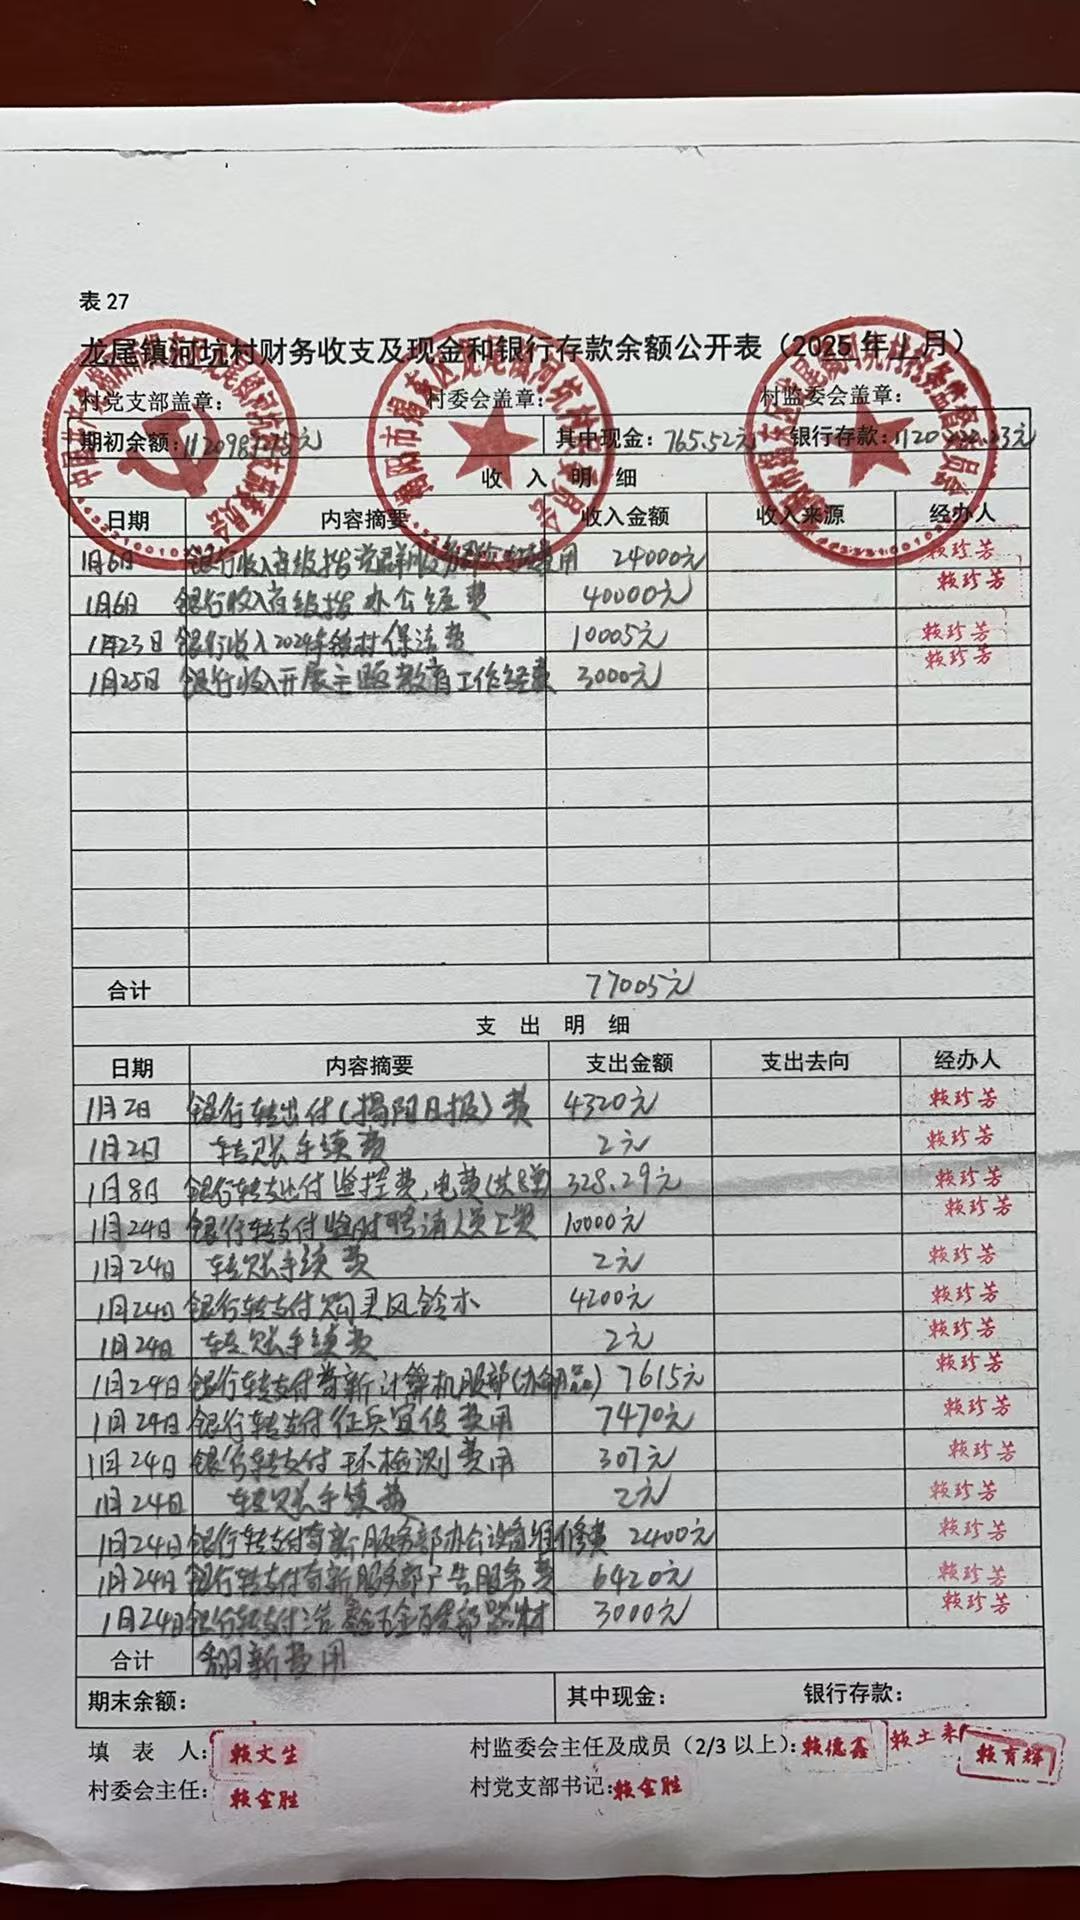 表 27
龙尾镇河坑村财务收支及现金和银行存款余额公开表（2025 年 1 月）
村党支部盖章： 村委会盖章： 村监委会盖章：
期初余额： 其中现金：765.52元 银行存款：
收 入 明 细
日期 内容摘要 收入金额 收入来源 经办人
1月6日 银行收入 费用 24000元 赖珍芳
1月6日 银行收入 办公经费 40000元 赖珍芳
1月23日 银行收入2024年镇村保洁费 10005元 赖珍芳
1月25日 银行收入开展主题教育工作经费 3000元 赖珍芳
合计 77005元
支 出 明 细
日期 内容摘要 支出金额 支出去向 经办人
1月2日 银行转出付(揭阳日报)费 4320元 赖珍芳
1月2日 转账手续费 2元 赖珍芳
1月8日 银行转支出付监控费,电费 328.29元 赖珍芳
1月24日 银行转支付临时聘请人员工资 10000元 赖珍芳
1月24日 转账手续费 2元 赖珍芳
1月24日 银行转支付购买风铃木 4200元 赖珍芳
1月24日 转账手续费 2元 赖珍芳
1月24日 银行转支付 新计算机服部(办公用品) 7615元 赖珍芳
1月24日 银行转支付征兵宣传费用 7470元 赖珍芳
1月24日 银行转支付环检测费用 307元 赖珍芳
1月24日 转账手续费 2元 赖珍芳
1月24日 银行转支付 新服务部办公设备维修费 2400元 赖珍芳
1月24日 银行转支付 新服务部广告服务费 6420元 赖珍芳
1月24日 银行转支付 五金百货 3000元 赖珍芳
合计 翻新费用
期末余额： 其中现金： 银行存款：
填 表 人：赖文生 村监委会主任及成员（2/3 以上）：赖德鑫 赖土来 赖育辉
村委会主任：赖金胜 村党支部书记：赖金胜